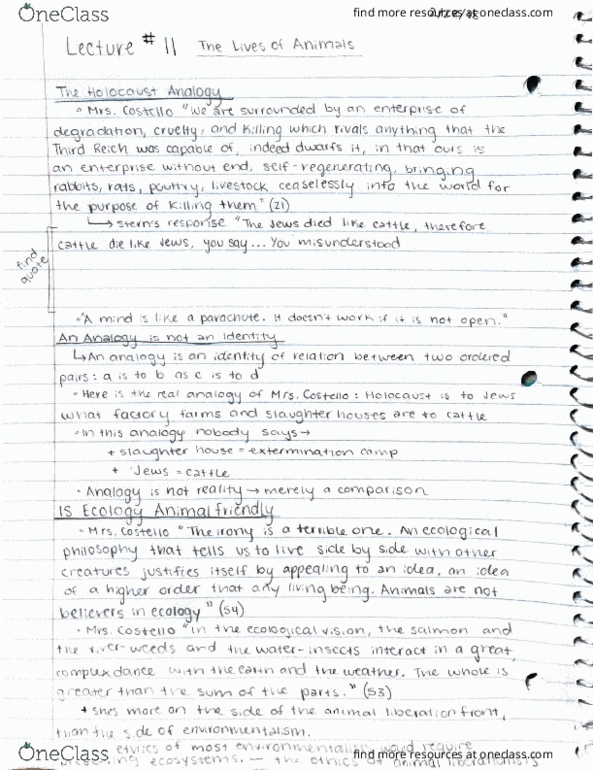 OneClass
find more resources at oneclass.com
Lecture #11 The Lives of Animals
The Holocaust Analogy
• Mrs. Costello "We are surrounded by an enterprise of
degradation, cruelty, and killing which rivals anything that the
Third Reich was capable of, indeed dwarfs it, in that ours is
an enterprise without end, self-regenerating, bringing
rabbits, rats, poultry, livestock ceaselessly into the world for
the purpose of killing them" (21)
↳ stern's response "The Jews died like cattle, therefore
cattle die like Jews, you say... You misunderstood
find
quote
• "A mind is like a parachute. It doesn't work if it is not open."
An Analogy is not an Identity
↳ An analogy is an identity of relation between two ordered
pairs: a is to b as c is to d
• Here is the real analogy of Mrs. Costello: Holocaust is to Jews
what factory farms and slaughter houses are to cattle
• In this analogy nobody says →
+ slaughter house = extermination camp
+ Jews = cattle
• Analogy is not reality → merely a comparison
Is Ecology Animal friendly
• Mrs. Costello "The irony is a terrible one. An ecological
philosophy that tells us to live side by side with other
creatures justifies itself by appealing to an idea, an idea
of a higher order that any living being. Animals are not
believers in ecology" (54)
• Mrs. Costello "In the ecological vision, the salmon and
the river-weeds and the water-insects interact in a great,
complex dance with the earth and the weather. The whole is
greater than the sum of the parts." (53)
+ shes more on the side of the animal liberation front,
than the side of environmentalism.
ethics of most environmentalists would require
ecosystems. — the ethics of animal liberationists
OneClass
find more resources at oneclass.com